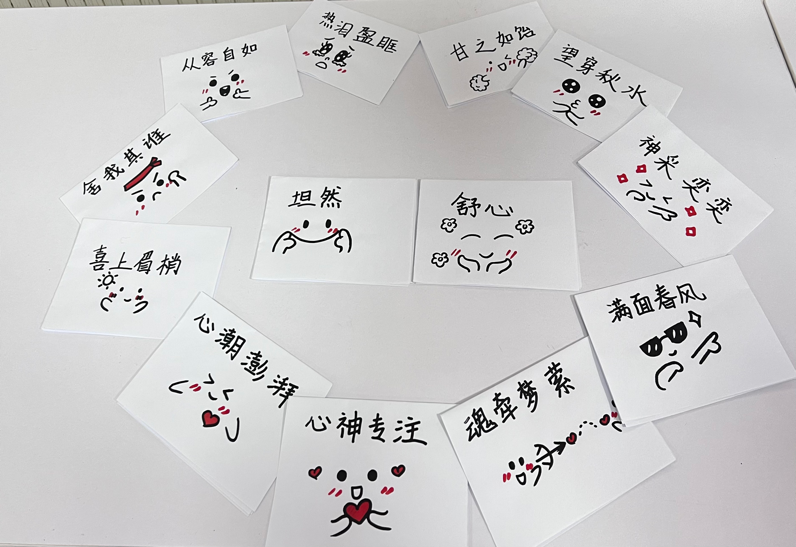 从容自如
热泪盈眶
甘之如饴
望穿秋水
舍我其谁
神采奕奕
坦然
舒心
喜上眉梢
满面春风
心潮澎湃
心神专注
魂牵梦萦